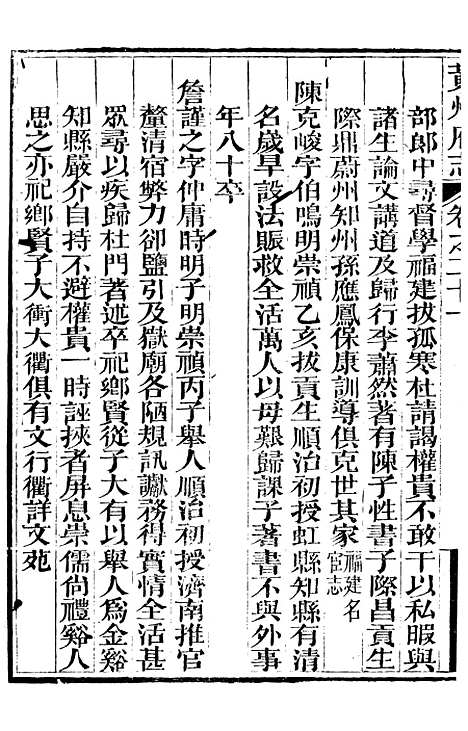 黃州府志 卷之二十一
部郎中尋督學福建拔孤寒杜請謁權貴不敢干以私暇與
諸生論文講道及歸行李蕭然著有陳子性書子際昌貢生
際鼎蔚州知州孫應鳳保康訓導俱克世其家福建名宦志
陳克峻字伯鳴明崇禎乙亥拔貢生順治初授虹縣知縣有清
名歲旱設法賑救全活萬人以母艱歸課子著書不與外事
年八十卒
詹謹之字仲庸時明子明崇禎丙子舉人順治初授濟南推官
釐清宿弊力卻鹽引及獄廟各陋規訊讞務得實情全活甚
眾尋以疾歸杜門著述卒祀鄉賢從子大有以舉人為金谿
知縣嚴介自持不避權貴一時誣挾者屏息崇儒尚禮谿人
思之亦祀鄉賢子大衝大衢俱有文行衢詳文苑